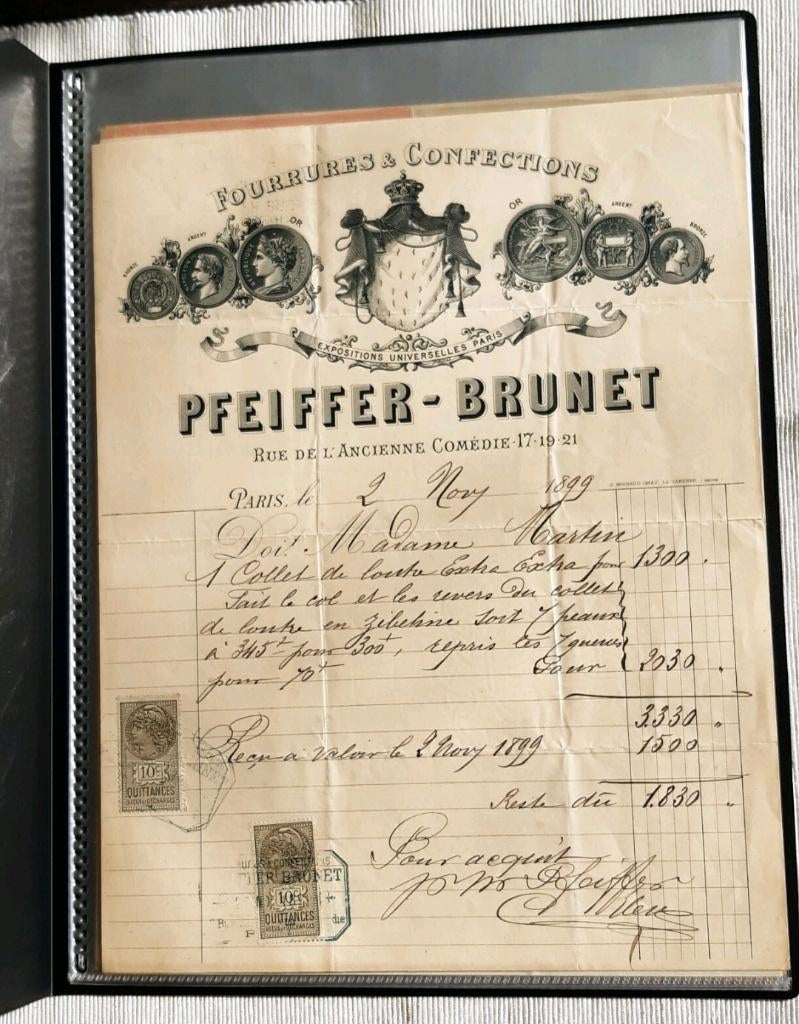 FOURRURES & CONFECTIONS
BRONZE ARGENT OR
OR ARGENT BRONZE
EXPOSITIONS UNIVERSELLES PARIS
PFEIFFER-BRUNET
RUE DE L'ANCIENNE COMÉDIE·17·19·21
PARIS, le 2 Nov 1899
Doit Madame Martin
1 Collet de loutre Extra Extra pour 1300
Fait le col et les revers du collet
de loutre en zibeline soit 7 peaux
à 345 f pour 300 f, repris les 7 queues
pour 70 f Pour 2030
3.330
Reçu à valoir le 2 Nov 1899 1500
Reste dû 1.830
Pour acquit
Pfeiffer
10c
QUITTANCES
REÇUS & DÉCHARGES
BRUNET
10c
QUITTANCES
REÇUS & DÉCHARGES